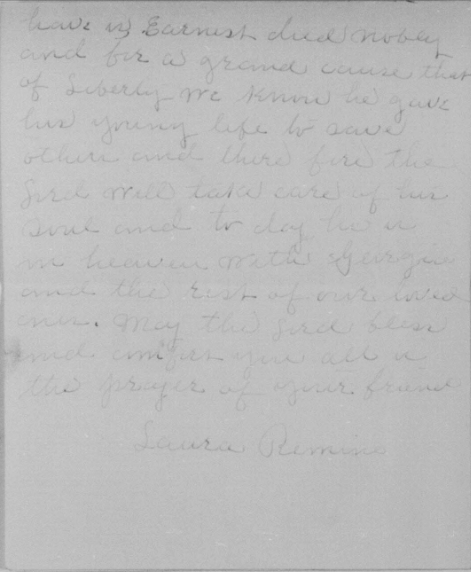 have is Earnest died nobly
and for a grand cause that
of Liberty we know he gave
his young life to save
others and there fore the
Lord will take care of his
soul and to day he is
in heaven with Georgia
and the rest of our loved
ones. May the Lord bless
and comfort you all is
the prayer of your friend
Laura Remino